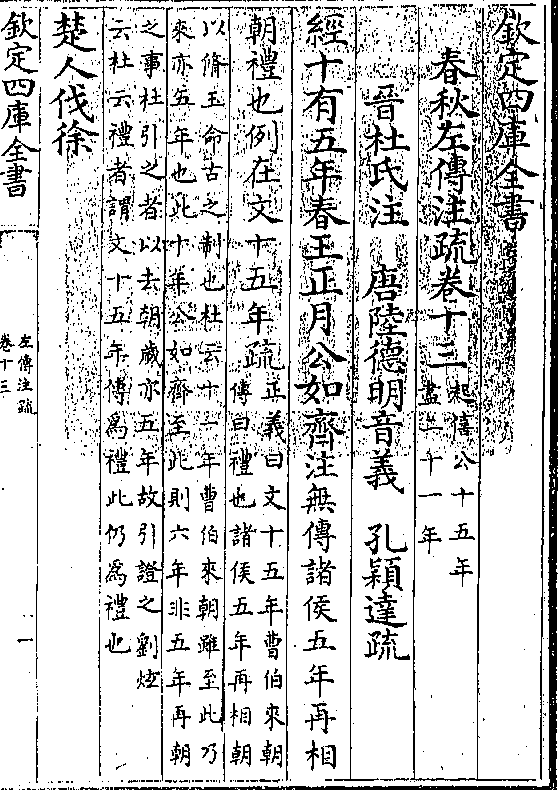 欽定四庫全書
春秋左傳注疏卷十三
起僖公十五年
盡二十一年
晉杜氏注　唐陸德明音義　孔穎達疏
經十有五年春王正月公如齊注無傳諸侯五年再相
朝禮也例在文十五年疏
正義曰文十五年曹伯來朝
傳曰禮也諸侯五年再相朝
以脩王命古之制也杜云十一年曹伯來朝雖至此乃
來亦五年也此十年公如齊至此則六年非五年再朝
之事杜引之者以去朝歲亦五年故引證之劉炫
云杜云禮者謂文十五年傳爲禮此仍爲禮也
楚人伐徐
欽定四庫全書
左傳注疏
卷十三
一